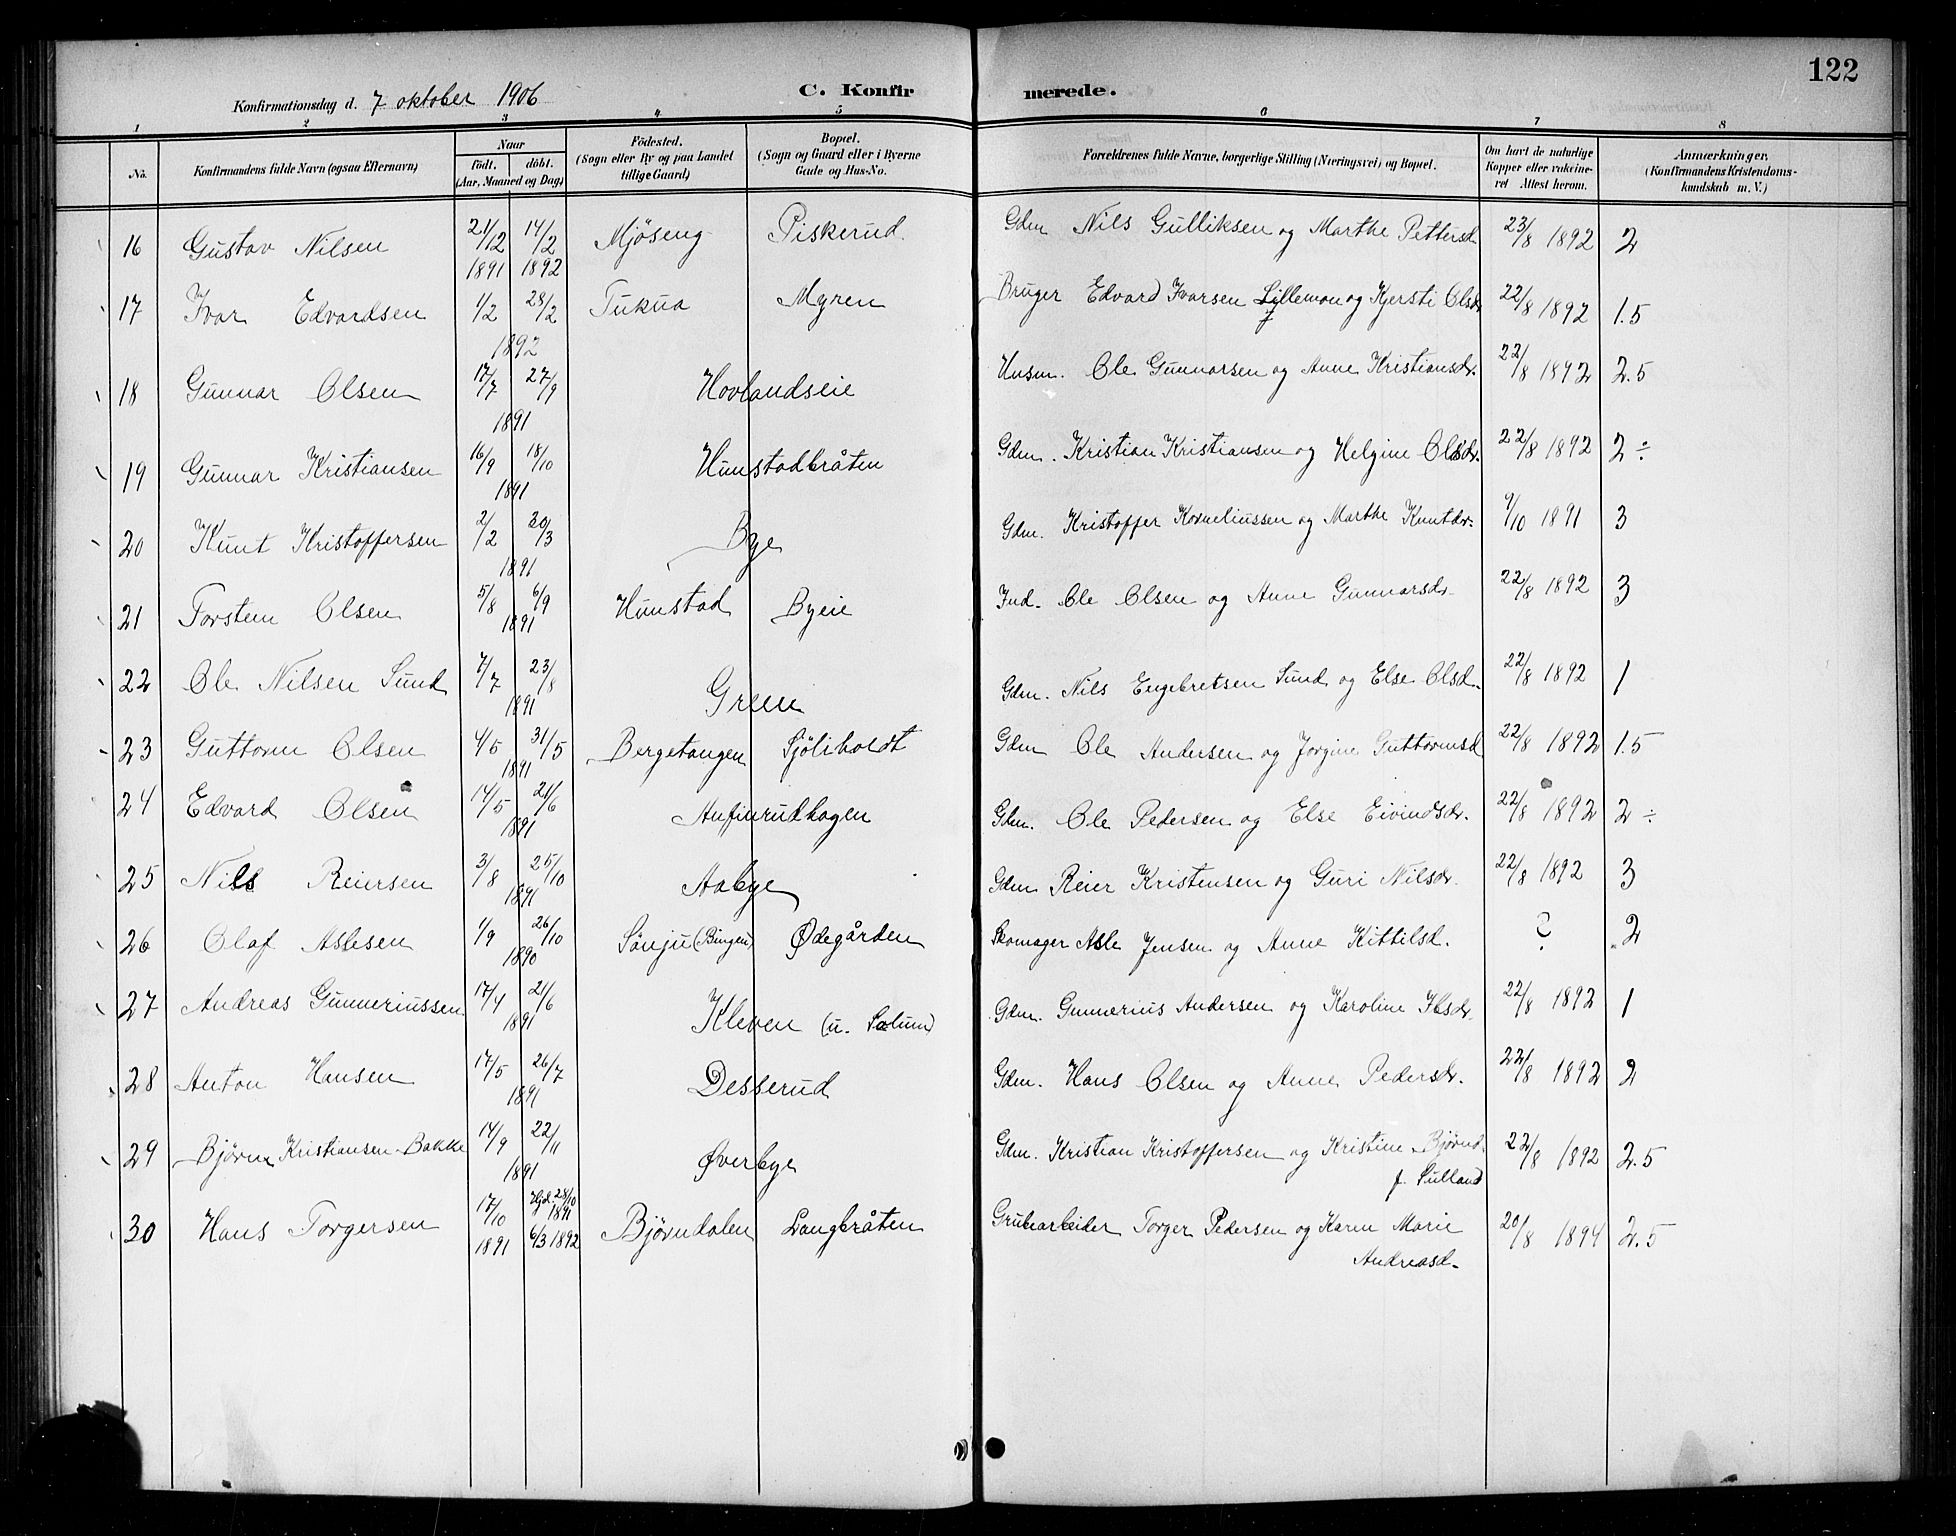 122
Konfirmationsdag d. 7 oktober 1906 C. Konfirmerede.
1 2 3 4 5 6 7 8
No. Konfirmandens fulde Navn (ogsaa Efternavn) Naar født. døbt. (Aar, Maaned og Dag) Fødested. (Sogn eller By og paa Landet tillige Gaard) Bopæl. (Sogn og Gaard eller i Byerne Gade og Hus-No. Forældrenes fulde Navne, borgerlige Stilling (Næringsvei) og Bopæl. Om havt de naturlige Kopper eller vakcineret Attest herom. Anmærkninger. (Konfirmandens Kristendomskundskab m. V.)
16 Gustav Nilsen 21/12 1891 14/2 1892 Mjøseng Piskerud Gdm Nils Gulliksen og Marthe Pettersd. 23/8 1892 2
17 Ivar Edvardsen 1/2 28/2 1892 Tukua Myren Bruger Edvard Ivarsen Lillemon og Kjersti Olsdr 22/8 1892 1.5
18 Gunnar Olsen 17/7 27/9 1891 Hovlandseie Husm. Ole Gunnarsen og Anne Kristiansdr. 22/8 1892 2.5
19 Gunnar Kristiansen 16/9 18/10 1891 Hunstadbråten Gdm. Kristian Kristiansen og Helgine Olsdr. 22/8 1892 2 ÷
20 Knut Kristoffersen 2/2 30/3 1891 Bye Gdm. Kristoffer Korneliussen og Marthe Knutdr. 9/10 1891 3
21 Torstein Olsen 5/8 6/9 1891 Hunstad Byeie Ind. Ole Olsen og Anne Gunnarsdr. 22/8 1892 3
22 Ole Nilsen Sund 7/7 23/8 1891 Green Gdm. Nils Engebretsen Sund og Else Olsd. 22/8 1892 1
23 Guttorm Olsen 4/5 31/5 1891 Bergetangen Sjøliholdt Gdm Ole Andersen og Jorgine Guttormsd 22/8 1892 1.5
24 Edvard Olsen 14/5 21/6 1891 Anfinrudhagen Gdm. Ole Pedersen og Else Eivindsdr. 22/8 1892 2 ÷
25 Nils Reiersen 3/8 25/10 1891 Aabye Gdm Reier Kristensen og Guri Nilsdr. 22/8 1892 3
26 Olaf Aslesen 1/9 26/10 1890 Sønju (Bingen) Ødegården Skomager Asle Jensen og Anne Kittilsd. ? 2
27 Andreas Gunneriussen 17/4 21/6 1891 Kleven (u. Solum) Gdm. Gunnerius Andersen og Karoline 22/8 1892 1
28 Anton Hansen 17/5 26/7 1891 Desserud Gdm. Hans Olsen og Anne Pedersdr. 22/8 1892 2
29 Bjørn Kristiansen Bakke 14/9 22/11 1891 Øverbye Gdm. Kristian Kristoffersen og Kristine Bjørnd. 22/8 1892 2.5
f. Sulland
30 Hans Torgersen 17/10 1891 Hjd. 28/10 1891 6/3 1892 Bjørndalen Langbråten Grubearbeider Torger Pedersen og Karen Marie 20/8 1894 2.5
Andreasd.